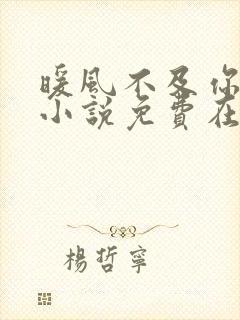 暖風不及你
小說免費在
楊哲寧